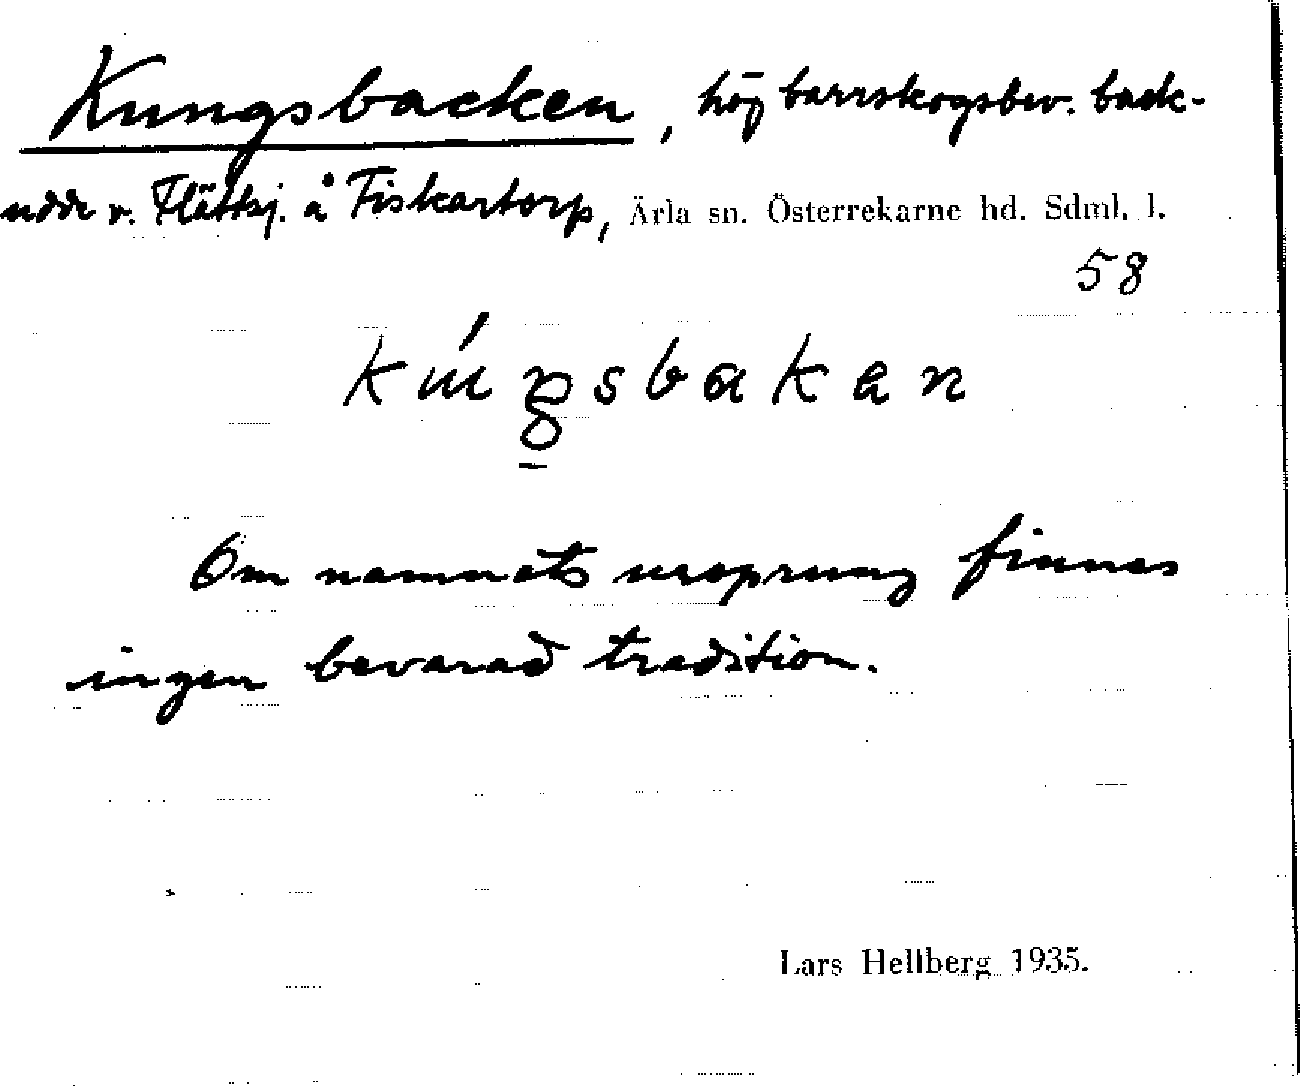 Kungsbacken, hög barrskogsbev. back-
udde v. Flättsj. å Fiskartorp, Ärla sn. Österrekarne hd. Sdml. l.
58
kúŋsbakan
Om namnets ursprung finnes
ingen bevarad tradition.
Lars Hellberg 1935.